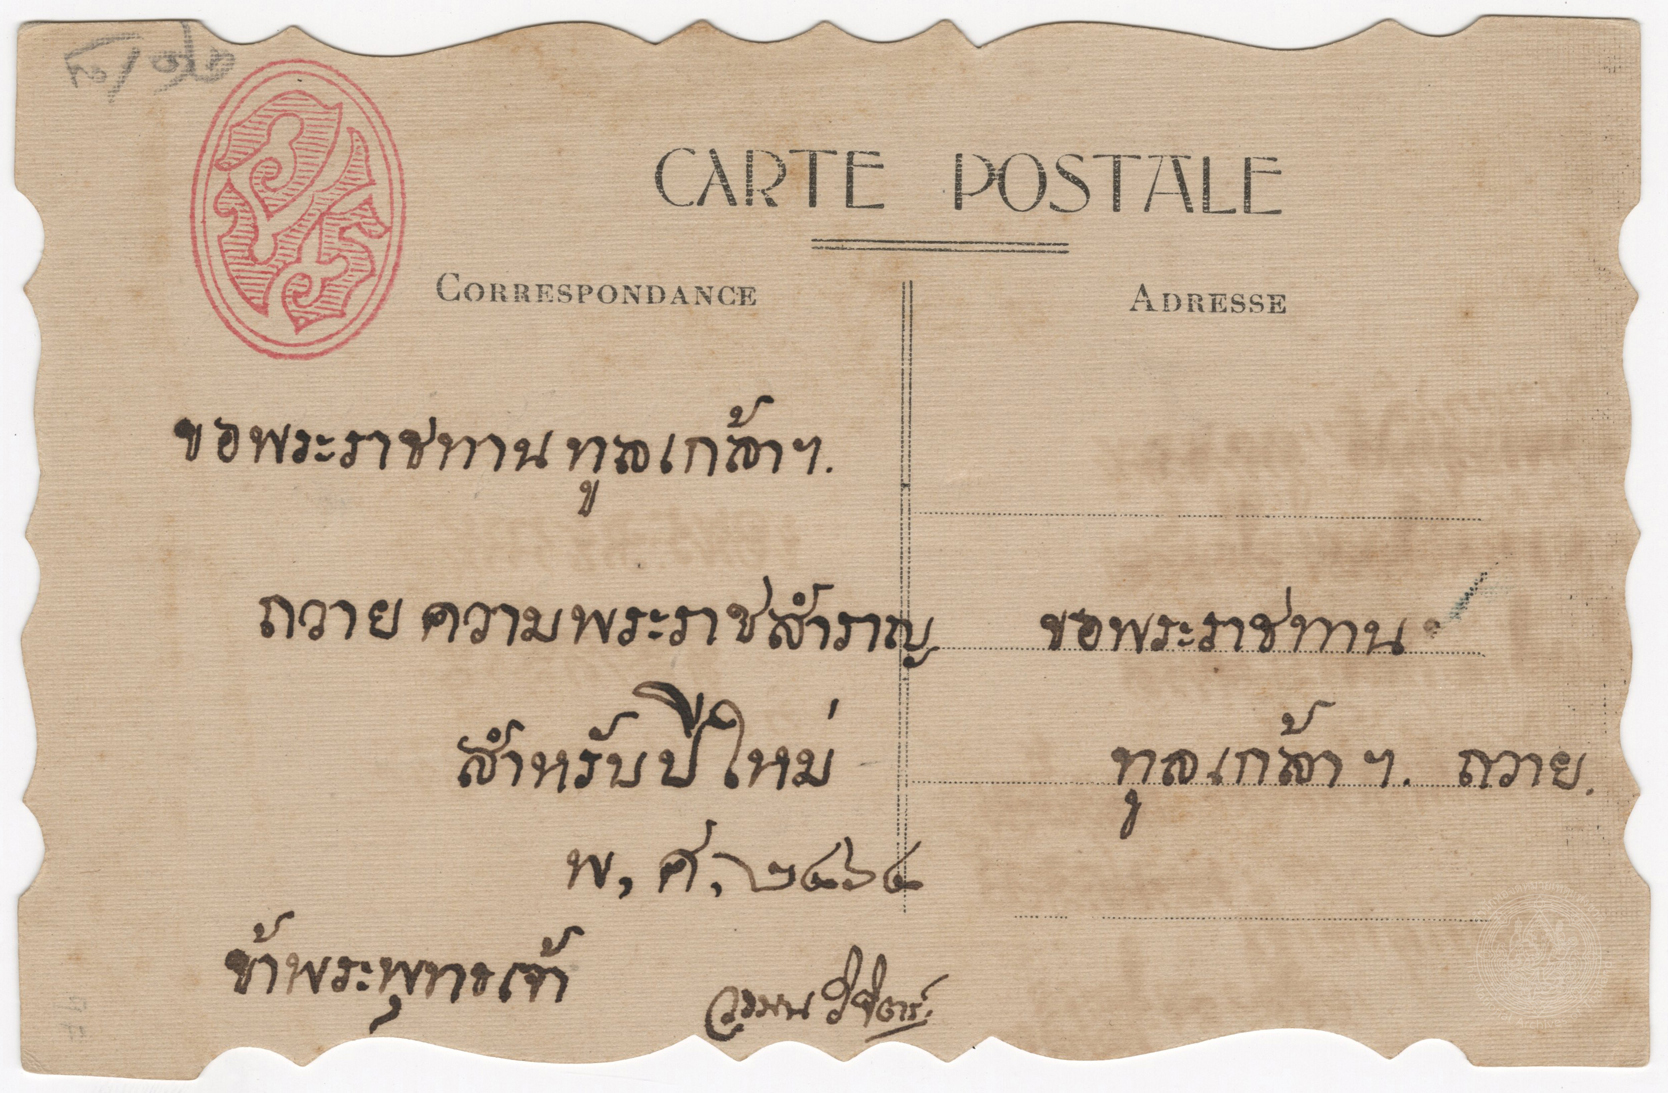 CARTE POSTALE
CORRESPONDANCE
ADRESSE
ขอพระราชทานทูลเกล้าฯ.
ถวายความพระราชสำราญ
สำหรับปีใหม่
พ,ศ,๒๔๖๔
ข้าพระพุทธเจ้า
ขอพระราชทาน
ทูลเกล้าฯ. ถวาย.